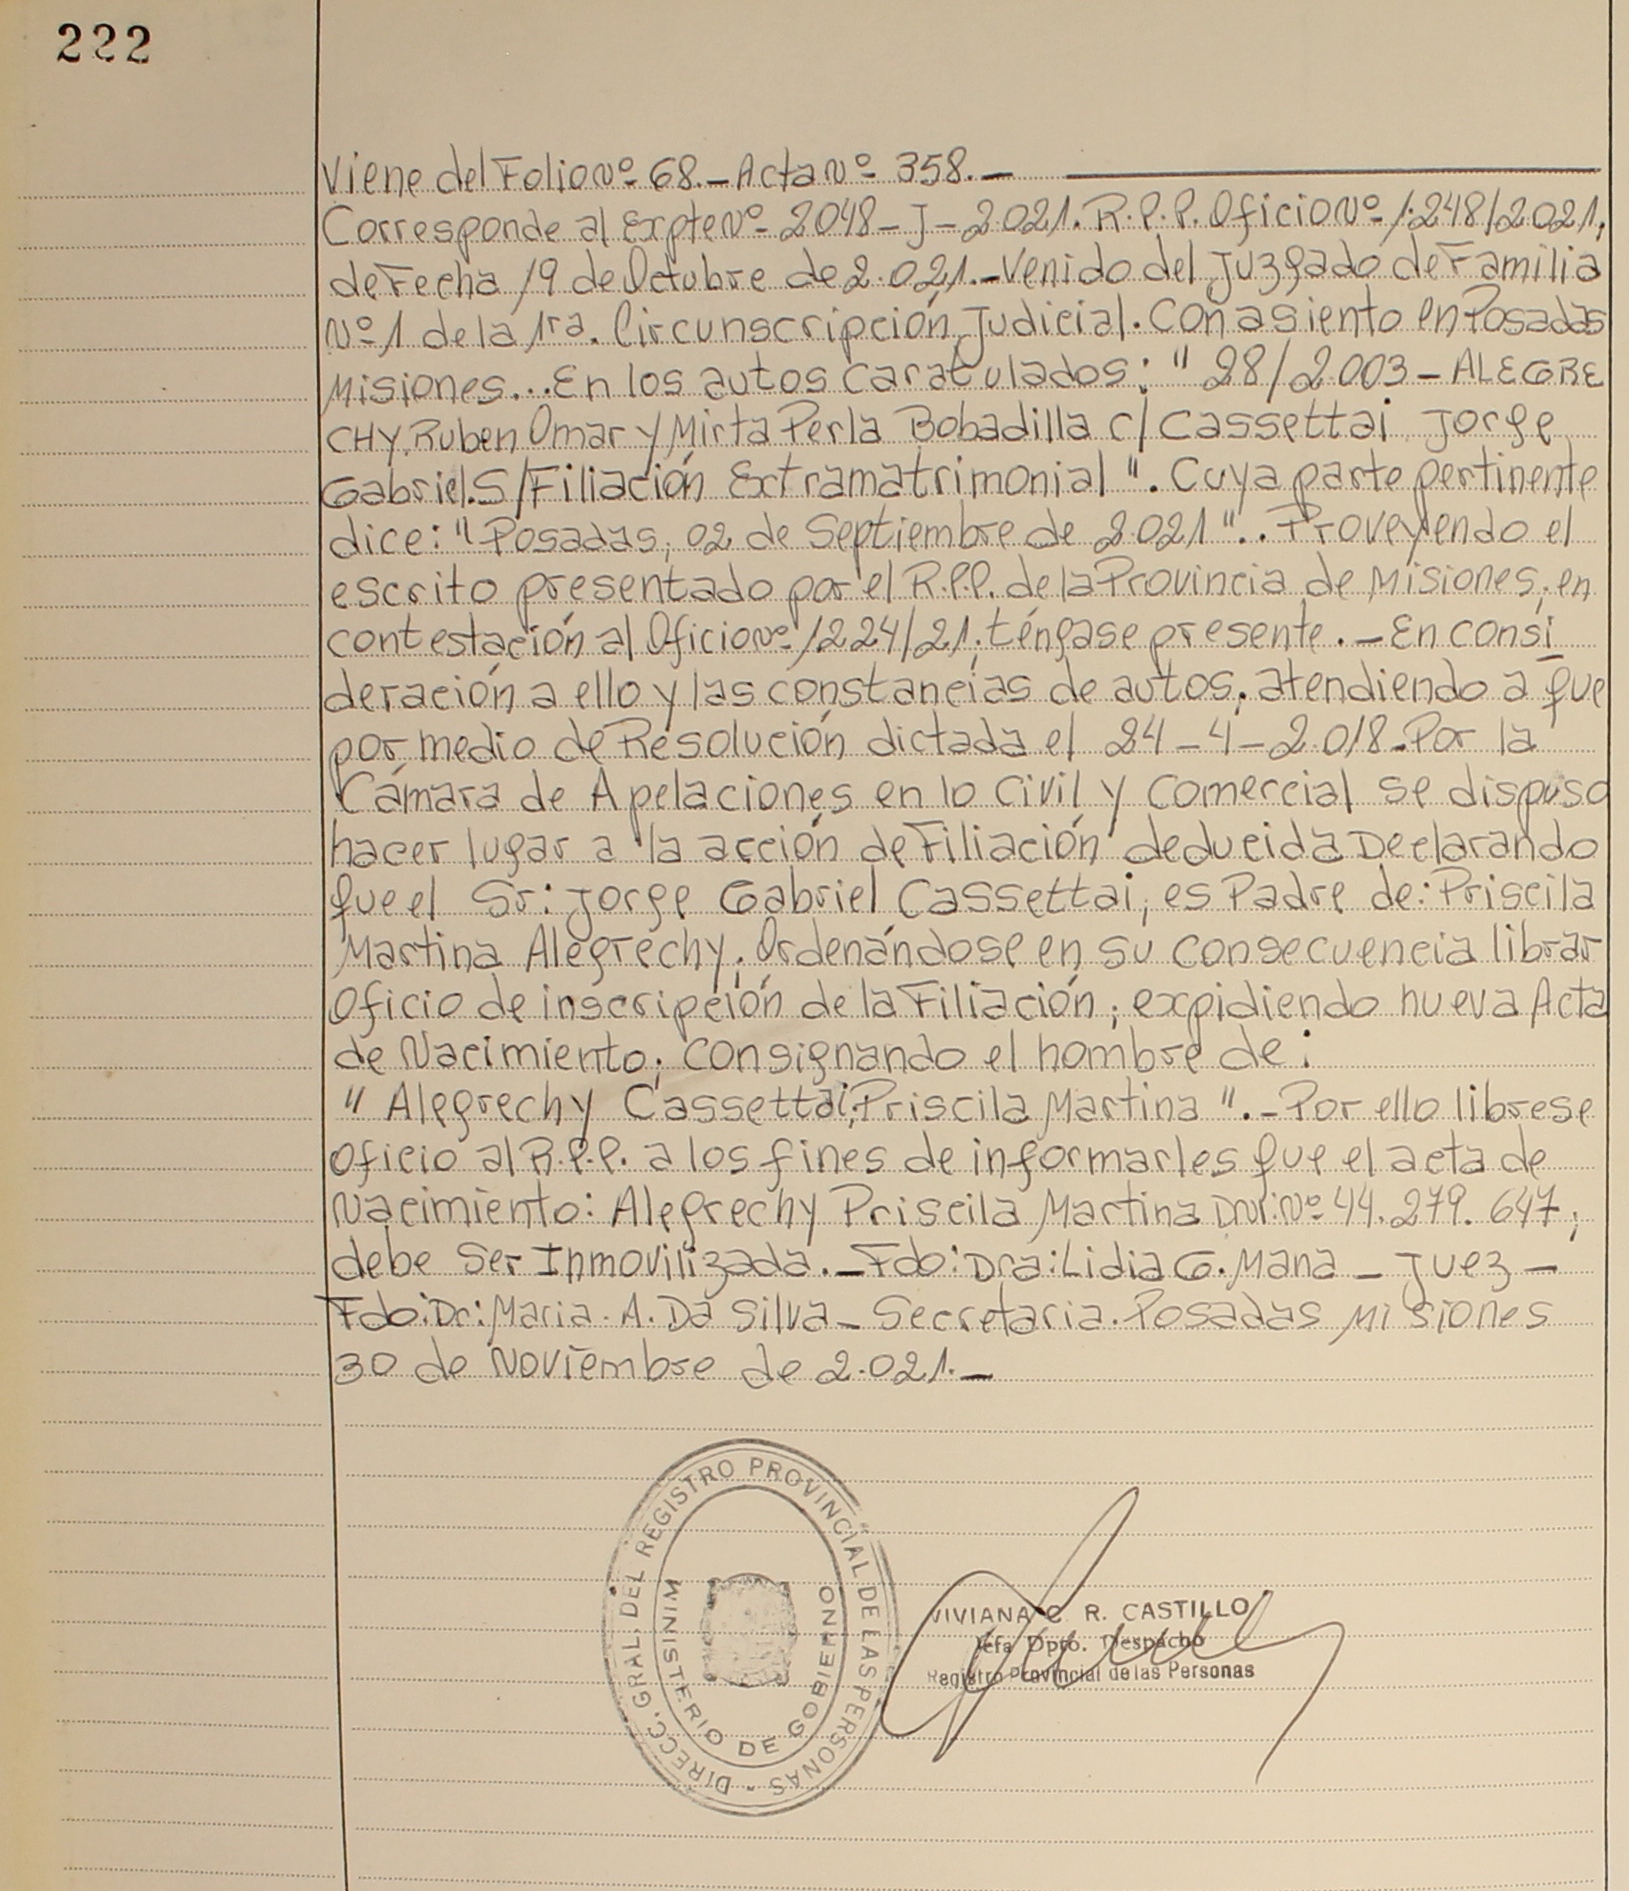 222
Viene del Folio Nº 68.- Acta Nº 358.-
Corresponde al Expte Nº 2048-J-2.021. R.P.P. Oficio Nº 1.248/2021,
de Fecha 19 de Octubre de 2.021.- Venido del Juzgado de Familia
Nº 1 de la 1ra. Circunscripción Judicial. Con asiento en Posadas
Misiones... En los autos caratulados: "28/2.003 - ALEGRE
CHY, Ruben Omar y Mirta Perla Bobadilla c/ Cassettai Jorge
Gabriel. S/Filiación Extramatrimonial". Cuya parte pertinente
dice: "Posadas, 02 de Septiembre de 2.021".. Proveyendo el
escrito presentado por el R.P.P. de la Provincia de Misiones, en
contestación al Oficio Nº 1224/21, téngase presente.- En consi
deración a ello y las constancias de autos, atendiendo a que
por medio de Resolución dictada el 24-4-2.018. Por la
Cámara de Apelaciones en lo Civil y Comercial se dispuso
hacer lugar a la acción de Filiación deducida Declarando
que el Sr: Jorge Gabriel Cassettai, es Padre de: Priscila
Martina Alegrechy, Ordenándose en su consecuencia librar
Oficio de inscripción de la Filiación, expidiendo nueva Acta
de Nacimiento; consignando el nombre de:
"Alegrechy Cassettai, Priscila Martina".- Por ello librese
Oficio al R.P.P. a los fines de informarles que el acta de
Nacimiento: Alegrechy Priscila Martina DNI: Nº 44.279.647,
debe Ser Inmovilizada.- Fdo: Dra: Lidia G. Mana - Juez -
Fdo: Dr: Maria. A. Da Silva - Secretaria. Posadas Misiones
30 de Noviembre de 2.021.-
DIRECC. GRAL. DEL REGISTRO PROVINCIAL DE LAS PERSONAS -
MINISTERIO DE GOBIERNO
VIVIANA C. R. CASTILLO
Jefa Dpto. Despacho
Registro Provincial de las Personas